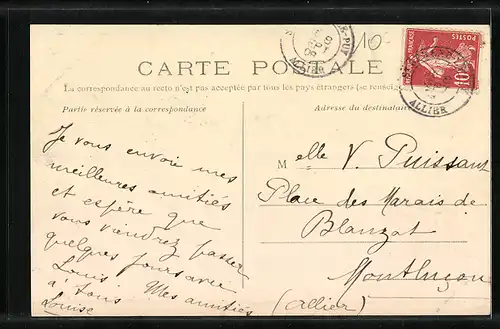 10-
CARTE POSTALE
La correspondance au recto n'est pas acceptée par tous les pays étrangers (se renseigner
Partie réservée à la correspondance
Adresse du destinataire
Je vous envoie mes
meilleures amitiés
et espère que
vous viendrez passer
quelques jours avec
Louis Mes amitiés
à tous
Louise
Melle V. Puissant
Place des Marais de
Blanzat
Montluçon
(Allier)
POSTES
10
ALLIER
ALLIER